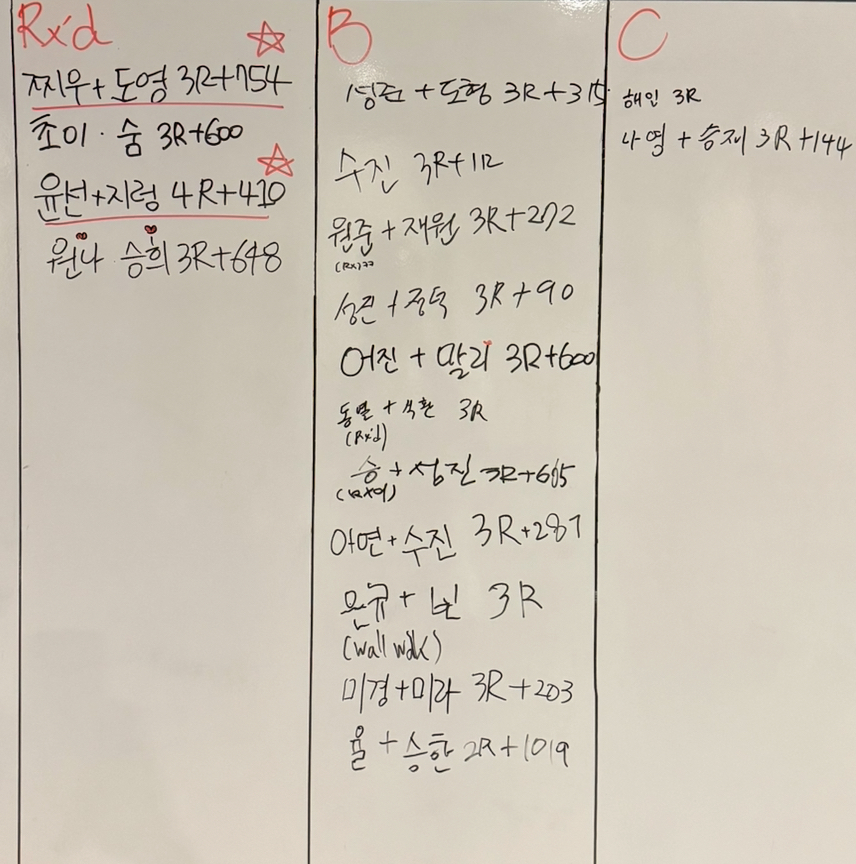 Rx'd
찌우+도영 3R+754
초이·숨 3R+600
윤선+지렁 4R+410
원나 승희 3R+648
B
성준+도형 3R+315
수진 3R+112
원준+재원 3R+272
(Rx)
성진+정덕 3R+90
어진+말리 3R+600
동열+석환 3R
(Rx'd)
승+성진 3R+605
아연+수진 3R+287
윤규+빈 3R
(wall walk)
미경+미라 3R+203
율+승한 2R+1019
C
해인 3R
나영+승제 3R+144